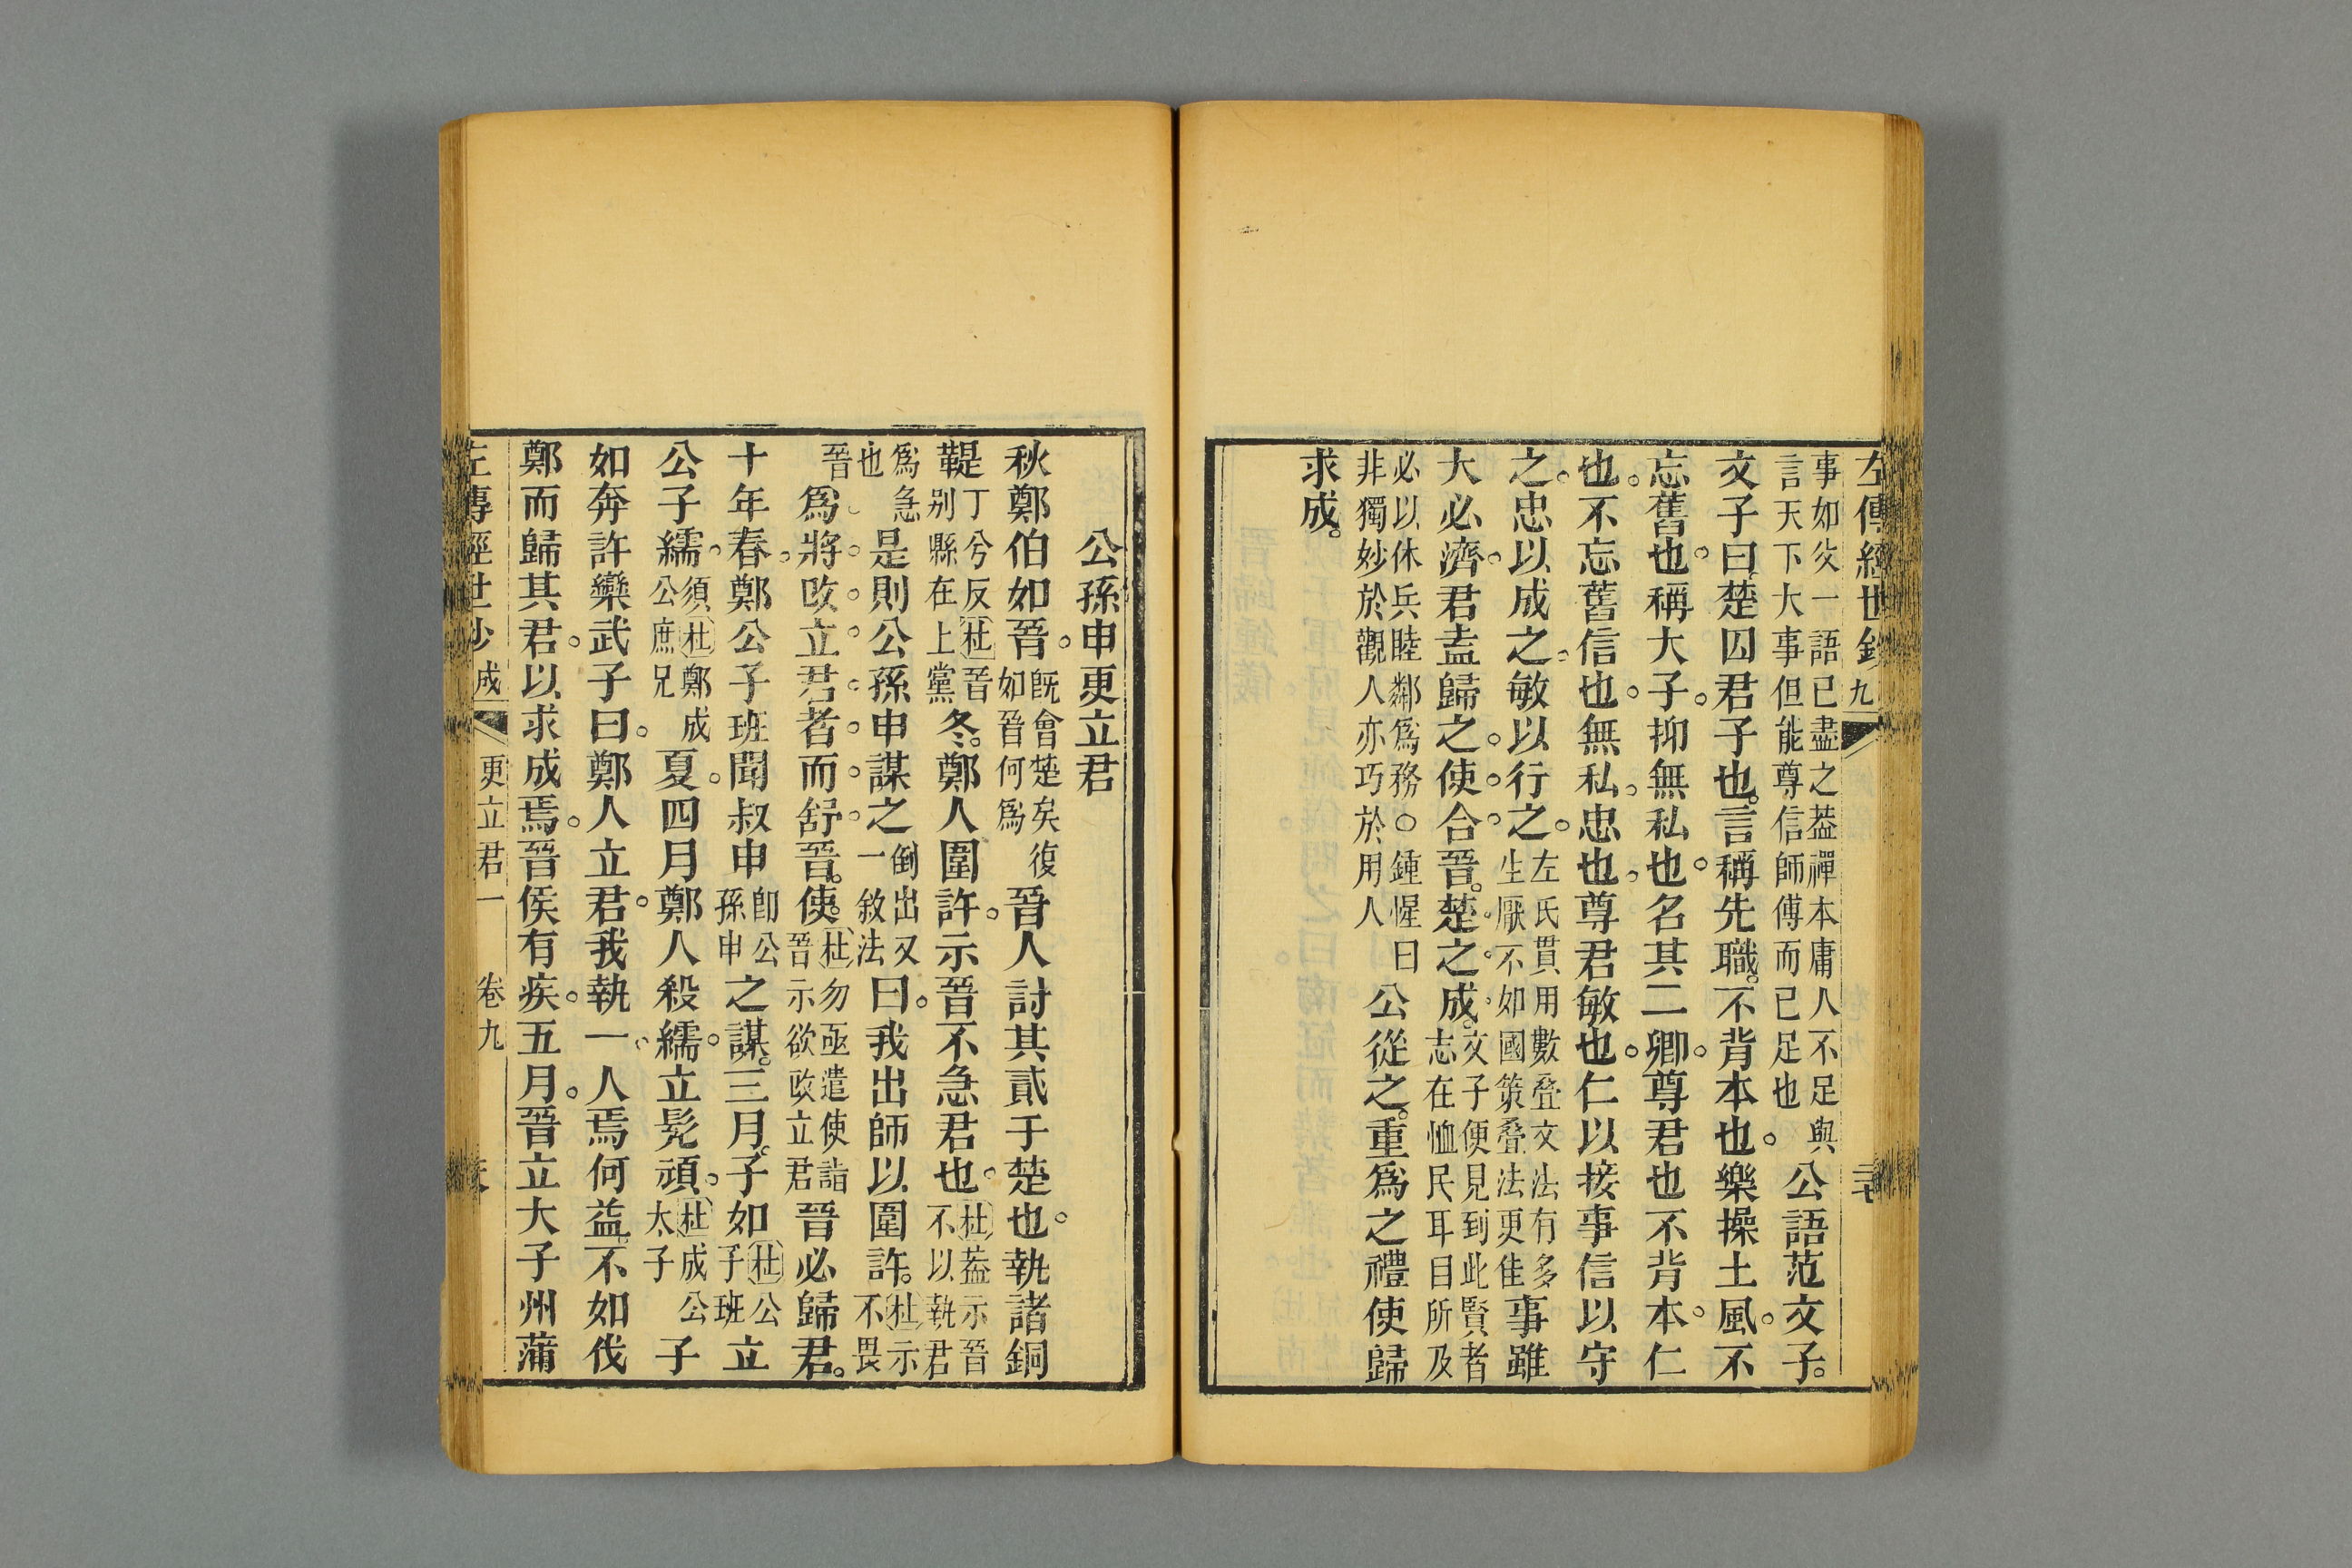 左傳經世鈔 九 三七
事如此一語已盡之葢禪本庸人不足與
言天下大事但能尊信師傅而已足也 公語范文子。
文子曰楚囚君子也。言稱先職。不背本也。樂操土風。不
忘舊也。稱大子。抑無私也。名其二卿。尊君也不背本。仁
也。不忘舊信也。無私。忠也。尊君敏也。仁以接事信以守
之。忠以成之。敏以行之。左氏貫用數叠文法有多
生厭不如國策叠法更佳 事雖
大必濟。君盍歸之。使。合。晉。楚。之。成。文子便見到此賢者
志在恤民耳目所及
必以休兵睦鄰爲務○鍾惺曰
非獨妙於觀人亦巧於用人 公從之。重爲之禮使歸
求成。
公孫申更立君
秋鄭伯如晉。既會楚矣復
如晉何爲 晉人討其貳于楚也。執諸銅
鞮 丁兮反杜晉
别縣在上黨 冬。鄭人圍許。示晉不急君也。杜葢示晉
不以執君
爲急
也 是則公孫申謀之 倒出又
一敘法 曰。我出師以圍許。杜示
不畏
晉 爲。將。改。立。君。者。而。舒。晉。使。杜勿亟遣使詣
晉示欲改立君 晉必歸君。
十年春。鄭公子班聞叔申 卽公
孫申 之謀。三月。子如 杜公
子班 立
公子繻。須杜鄭成
公庶兄 夏。四月鄭人殺繻。立髡頑。杜成公
太子 子
如奔許欒武子曰。鄭人立君。我執一人焉何益。不如伐
鄭而歸其君。以求成焉。晉侯有疾。五月。晉立大子州蒲
左傳經世鈔 成 更立君一 卷九